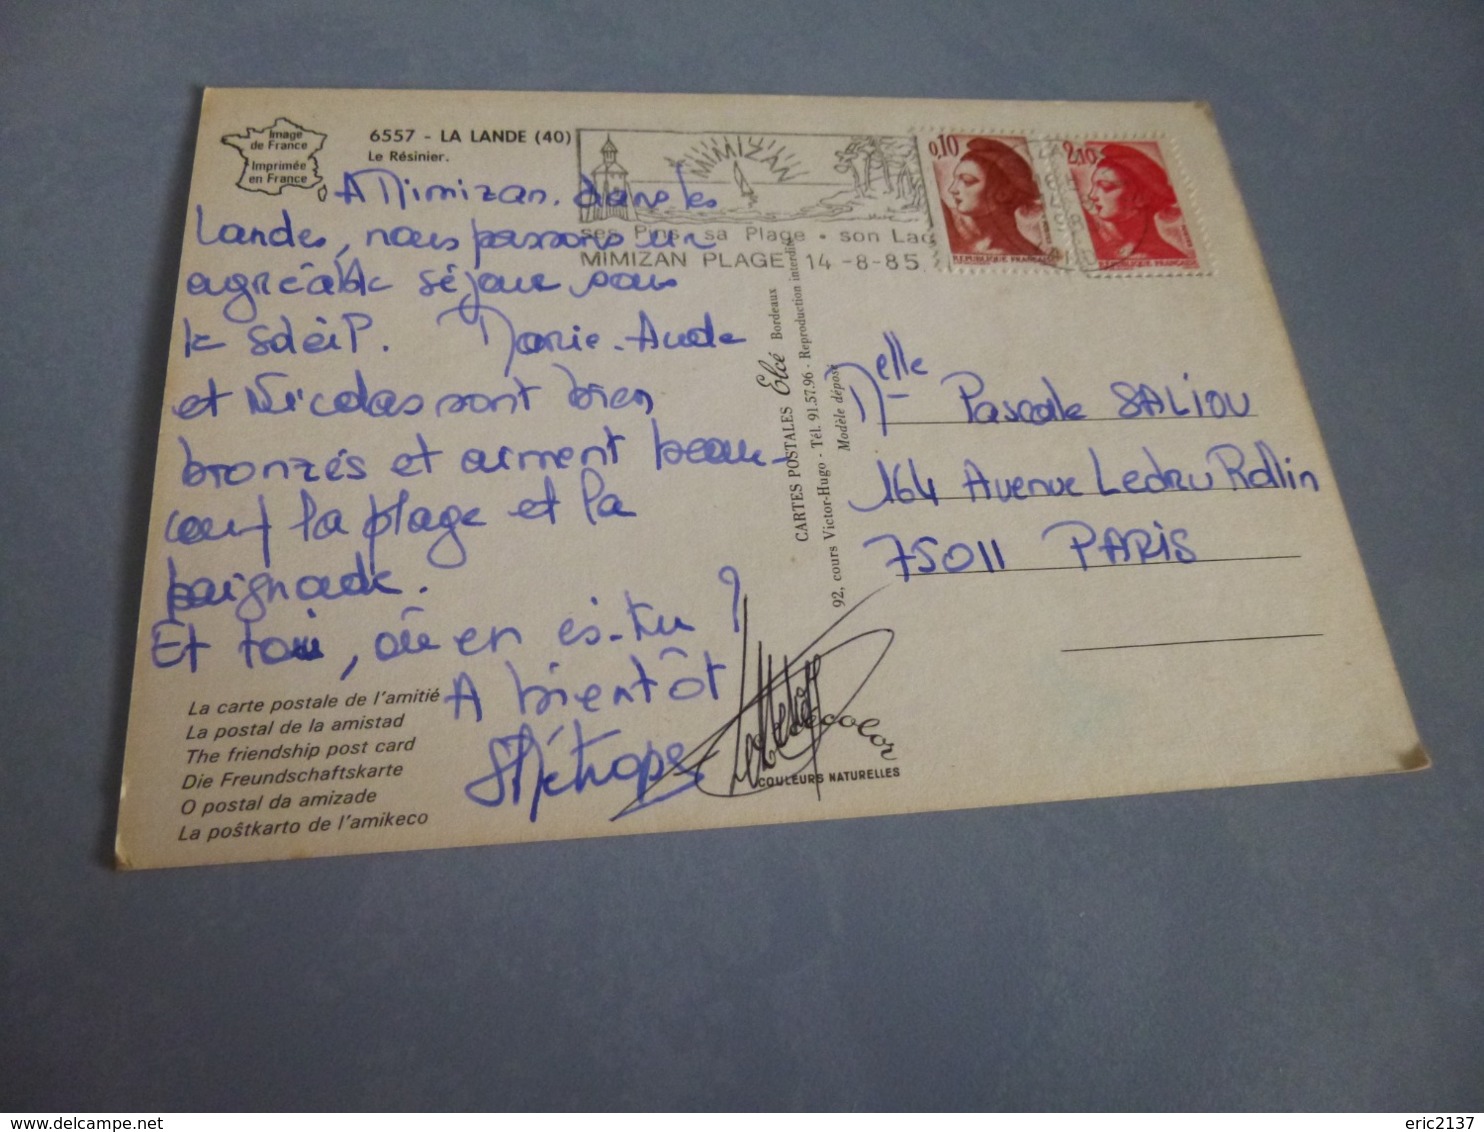 Image
de France
Imprimée
en France
6557 - LA LANDE (40)
Le Résinier.
A Mimizan, dans les
Landes, nous passons un
agréable séjour sous
le soleil. Marie-Aude
et Nicolas sont bien
bronzés et aiment beau-
coup la plage et la
baignade.
Et toi, où en es-tu ?
A bientôt
La carte postale de l'amitié
La postal de la amistad
The friendship post card
Die Freundschaftskarte
O postal da amizade
La poŝtkarto de l'amikeco
MIMIZAN
ses Pins sa Plage - son Lac
MIMIZAN PLAGE 14 -8-85
0,10
REPUBLIQUE FRANÇAISE
2,10
REPUBLIQUE FRANÇAISE
CARTES POSTALES Elcé Bordeaux
92, cours Victor-Hugo - Tél. 91.57.96 - Reproduction interdite
Modèle déposé
Melle Pascale SALIOU
164 Avenue Ledru Rollin
75011 PARIS
COULEURS NATURELLES
eric2137